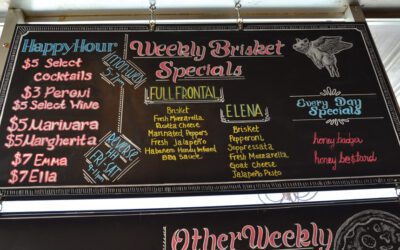 Happy Hour
$5 Select
cocktails
$3 Peroni
$5 Select Wine
$5 Marinara
$5 Margherita
$7 Emma
$7 Ella
Weekly Brisket
Specials
FULL FRONTAL
Brisket
Fresh Mozzarella
Ricotta Cheese
Marinated Peppers
Fresh Jalapeño
Habanero Honey Infused
BBQ Sauce
ELENA
Brisket
Pepperoni
Soppressata
Fresh Mozzarella
Goat Cheese
Jalapeño Pesto
Every Day
Specials
honey badger
honey bastard
Other Weekly